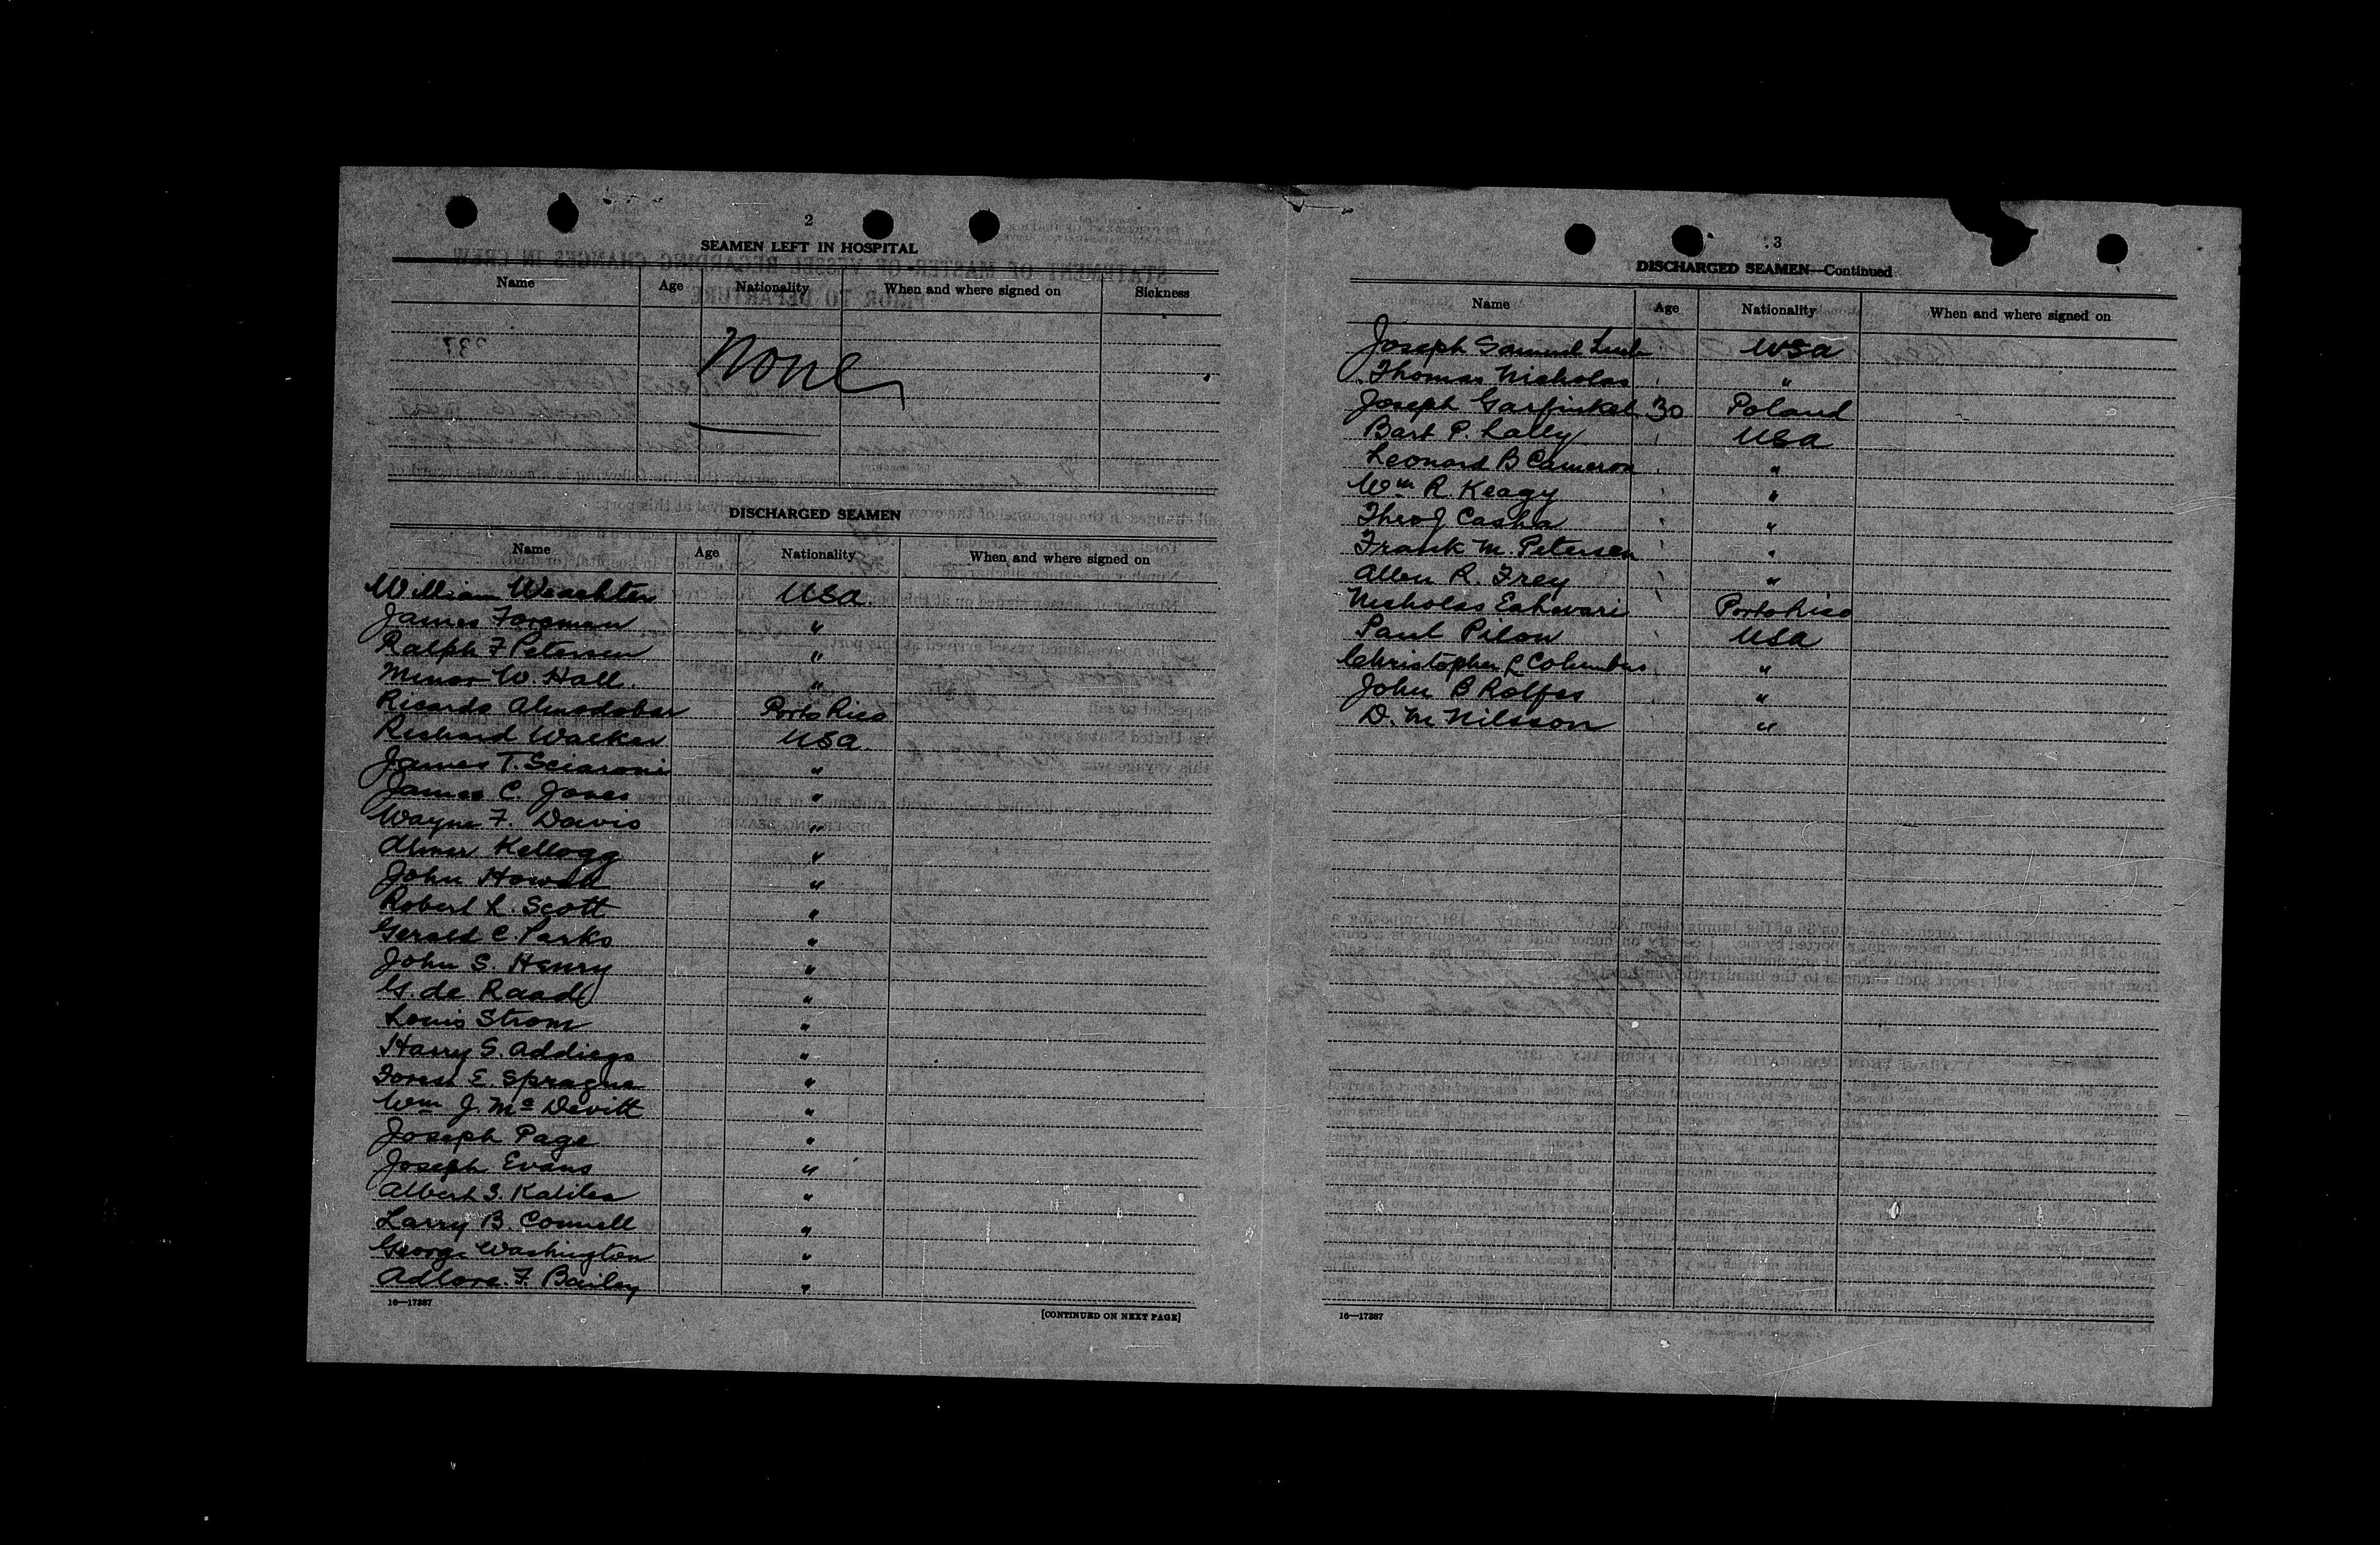 2
SEAMEN LEFT IN HOSPITAL
Name Age Nationality When and where signed on Sickness
None
DISCHARGED SEAMEN
Name Age Nationality When and where signed on
William Weachter USA
James Foreman "
Ralph F Petersen "
Minor W. Hall. "
Ricardo Almodobar Porto Rico
Richard Walker USA
James T. Sciaroni "
James C. Jones "
Wayne F. Davis "
Almer Kellogg "
John Howell "
Robert L. Scott "
Gerald C. Parks "
John S. Henry "
G. de Raad "
Louis Strom "
Harry S. Addiego "
Forest E. Sprague "
Wm J. Mc Devitt "
Joseph Page "
Joseph Evans "
Albert S. "
Larry B. Connell "
George Washington "
Adlore F. Bailey "
16—17387
[CONTINUED ON NEXT PAGE]
3
DISCHARGED SEAMEN—Continued
Name Age Nationality When and where signed on
Joseph Samuel USA
Thomas Nicholas "
Joseph Garfinkel 30 Poland
Bart P. Lally USA
Leonard B Cameron "
Wm R. Keagy "
Theo J Casha "
Frank M. Petersen "
Allen R. Frey "
Nicholas Porto Rico
Paul Pilon USA
Christopher L Columbus "
John B Rolfes "
D. M Nilsson "
16—17387